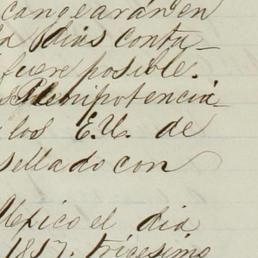 cangearán en
dias conta_
fuere posible.
Plenipotencia_
los E.U. de
sellado con
Mexico el dia
1857. trigesimo